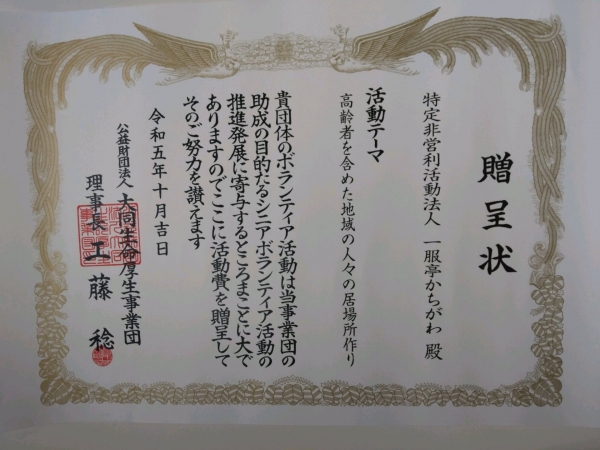 贈呈状
特定非営利活動法人 一服亭かちがわ 殿
活動テーマ
高齢者を含めた地域の人々の居場所作り
貴団体のボランティア活動は当事業団の
助成の目的たるシニアボランティア活動の
推進発展に寄与するところまことに大で
ありますのでここに活動費を贈呈して
そのご努力を讃えます
令和五年十月吉日
公益財団法人 大同生命厚生事業団
理事長 工藤 稔